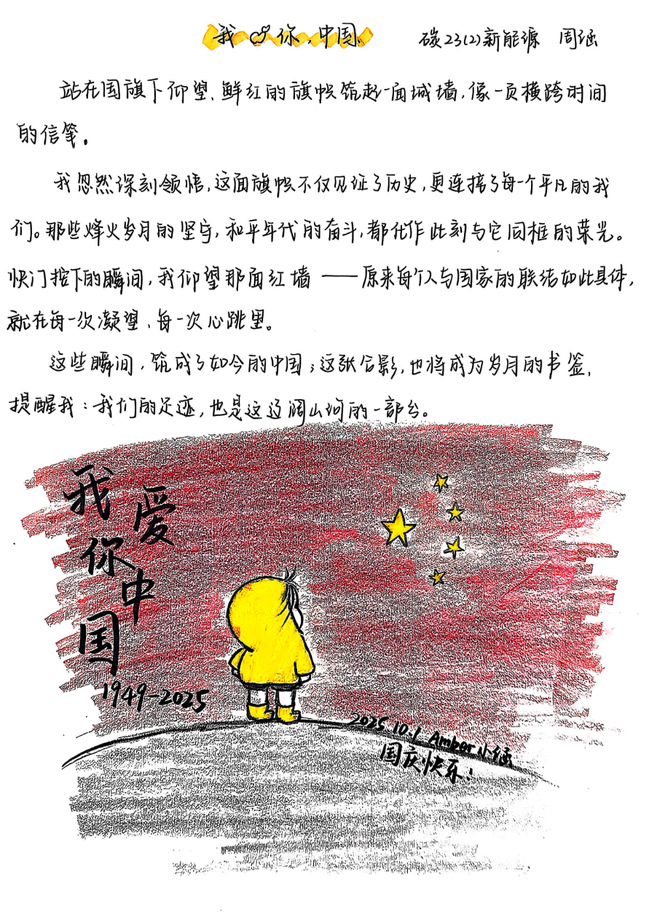 我 你，中国。 碳23(2)新能源 周涵
站在国旗下仰望，鲜红的旗帜筑起一面城墙，像一页横跨时间
的信笺。
我忽然深刻领悟，这面旗帜不仅见证了历史，更连接了每一个平凡的我
们。那些烽火岁月的坚守，和平年代的奋斗，都化作此刻与它同框的荣光。
快门按下的瞬间，我仰望那面红墙——原来每个人与国家的联结如此具体，
就在每一次凝望、每一次心跳里。
这些瞬间，筑成了如今的中国；这张合影，也将成为岁月的书签，
提醒我：我们的足迹，也是这辽阔山河的一部分。
我爱
你中
国
1949-2025
2025.10.1 Amber小涵
国庆快乐！